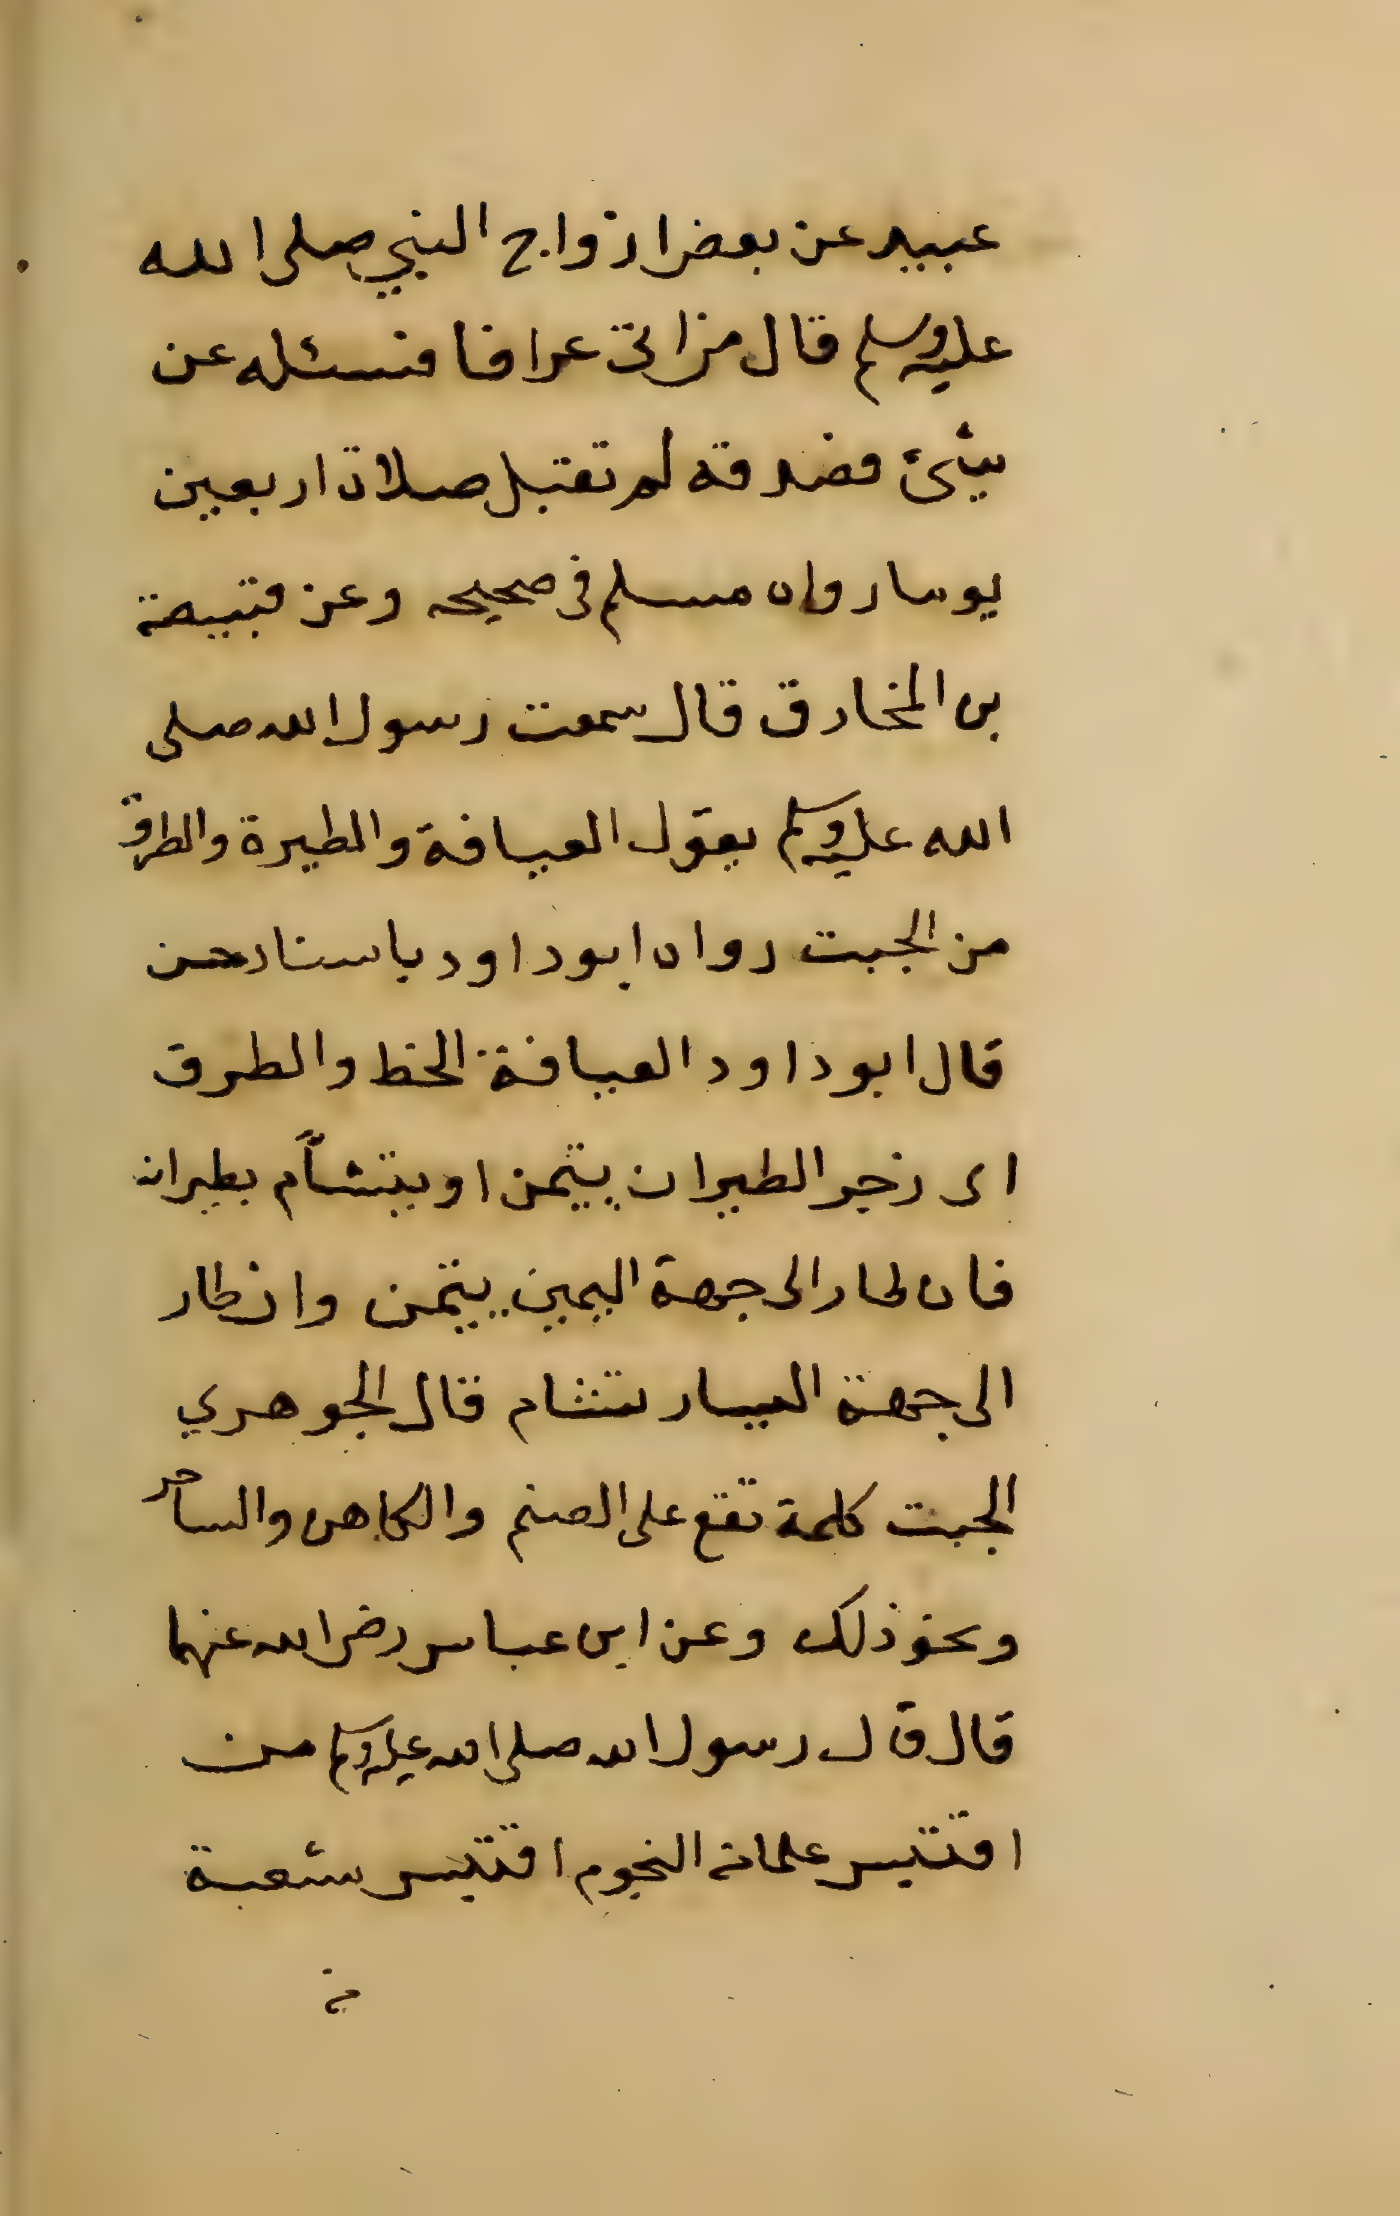 عبيد عن بعض ازواج النبي صلى الله
عليه وسلم قال من اتى عرافا فسئله عن
شئ فصدقه لم تقبل صلاة اربعين
يوما رواه مسلم في صحيحه وعن قبيصة
بن المخارق قال سمعت رسول الله صلى
الله عليه وسلم يقول العيافة والطيرة والطرق
من الجبت رواه ابوداود باسناد حسن
قال ابوداود العيافة الخط والطرق
اى زجر الطير ان يتيمن او يتشأم بطيرانه
فان طار الى جهة اليمين يتيمن وان طار
الى جهة اليسار تشام قال الجوهري
الجبت كلمة تقع على الصنم والكاهن والساحر
ونحو ذلك وعن ابن عباس رضى الله عنهما
قال قال رسول الله صلى الله عليه وسلم من
اقتبس علما من النجوم اقتبس شعبة
من